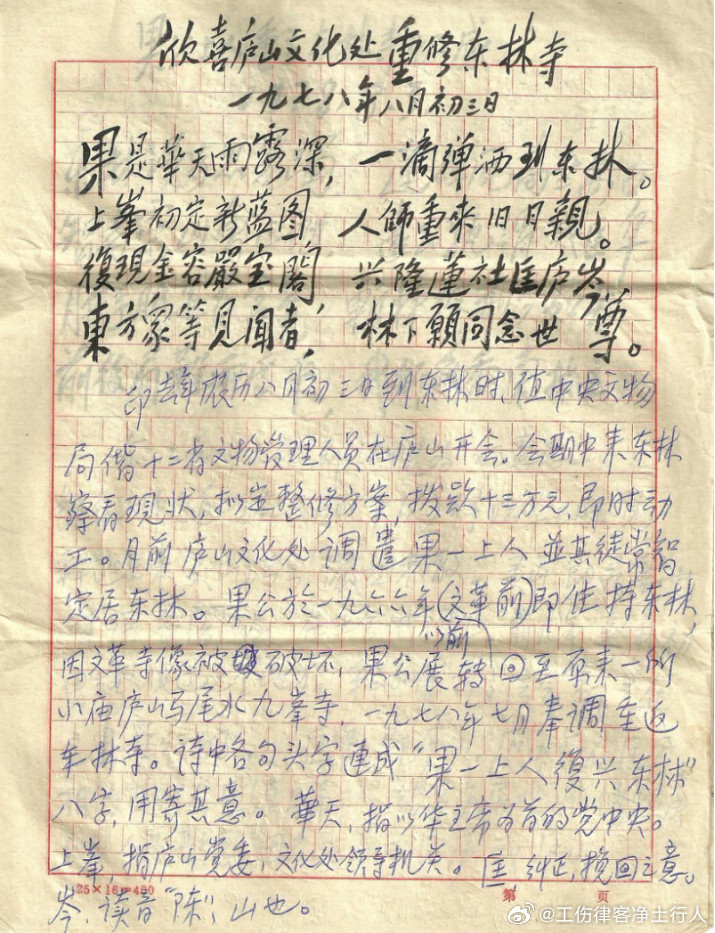 欣喜庐山文化处重修东林寺
一九七八年八月初三日
果是華天雨露深，一滴弹洒到东林。
上峯初定新蓝图，人師重来旧日親。
復現金容嚴宝閣，兴隆蓮社匡庐岑
東方衆等見闻者，林下願同念世尊。
印去年农历八月初三日到东林时，值中央文物
局偕十二省文物管理人员在庐山开会。会期中来东林
察看現状，拟定整修方案，拨款十三万元，即时动
工。月前庐山文化处调遣果一上人並其徒常智
定居东林。果公於一九六六年（文革前）即住持东林，
以前
因文革寺像被破坏，果公展转回至原来一所
小庙庐山马尾水九峯寺，一九七八年七月奉调重返
东林寺。诗中各句头字連成“果一上人復兴东林”
八字，用寄其意。華天，指以华主席为首的党中央。
上峯，指庐山党委，文化处领导机关。匡 纠正，挽回之意。
岑，读音“陈”，山也。
25×16=400
第 页
@工伤律客净土行人